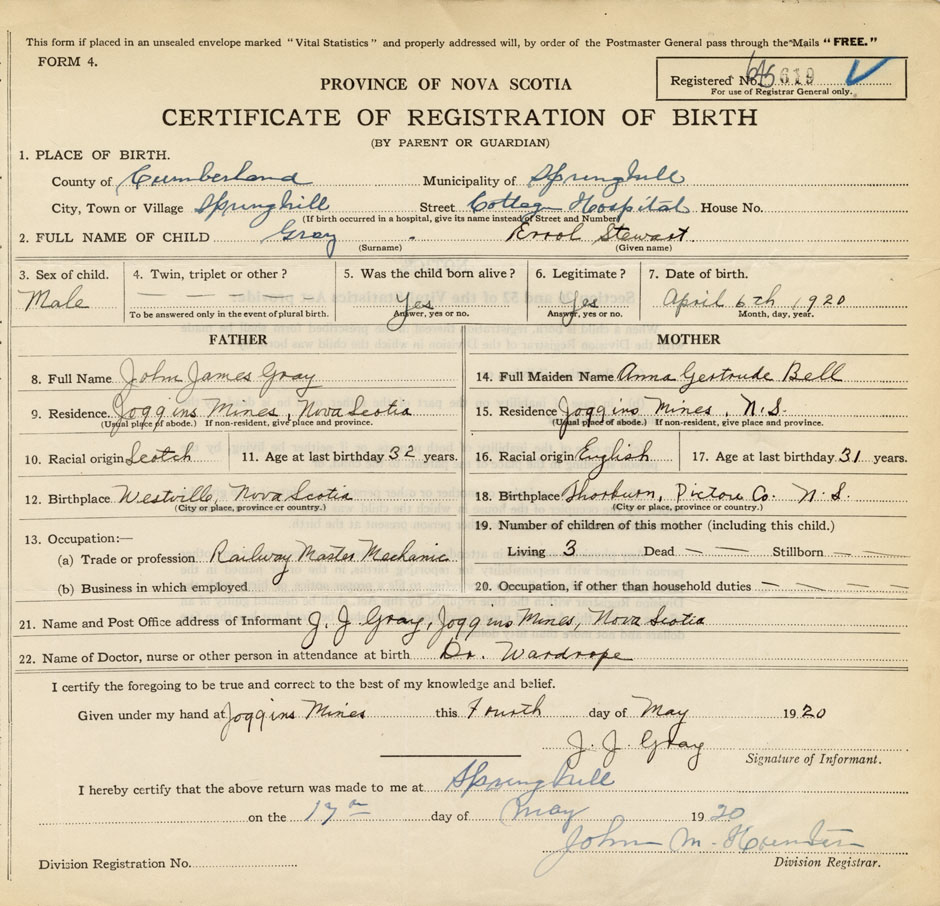 This form if placed in an unsealed envelope marked "Vital Statistics" and properly addressed will, by order of the Postmaster General pass through the Mails "FREE."
FORM 4.
Registered No. 619
For use of Registrar General only.
PROVINCE OF NOVA SCOTIA
CERTIFICATE OF REGISTRATION OF BIRTH
(BY PARENT OR GUARDIAN)
1. PLACE OF BIRTH.
County of Cumberland Municipality of Springhill
City, Town or Village Springhill Street Cottage Hospital House No.
(If birth occurred in a hospital, give its name instead of Street and Number)
2. FULL NAME OF CHILD Gray Errol Stewart
(Surname) (Given name)
3. Sex of child. 4. Twin, triplet or other? 5. Was the child born alive? 6. Legitimate? 7. Date of birth.
Male — — — Yes Yes April 6th 1920
To be answered only in the event of plural birth. Answer, yes or no. Answer, yes or no. Month, day, year.
FATHER MOTHER
8. Full Name John James Gray 14. Full Maiden Name Anna Gertrude Bell
9. Residence Joggins Mines, Nova Scotia 15. Residence Joggins Mines, N.S.
(Usual place of abode.) If non-resident, give place and province. (Usual place of abode.) If non-resident, give place and province.
10. Racial origin Scotch 11. Age at last birthday 32 years. 16. Racial origin English 17. Age at last birthday 31 years.
12. Birthplace Westville, Nova Scotia 18. Birthplace Thorburn, Pictou Co. N.S.
(City or place, province or country.) (City or place, province or country.)
13. Occupation:— 19. Number of children of this mother (including this child.)
(a) Trade or profession Railway Master Mechanic Living 3 Dead — — Stillborn — —
(b) Business in which employed 20. Occupation, if other than household duties — — — —
21. Name and Post Office address of Informant J. J. Gray, Joggins Mines, Nova Scotia
22. Name of Doctor, nurse or other person in attendance at birth Dr. Wardrope
I certify the foregoing to be true and correct to the best of my knowledge and belief.
Given under my hand at Joggins Mines this Fourth day of May 1920
J. J. Gray
Signature of Informant.
I hereby certify that the above return was made to me at Springhill
on the 17th day of May 1920
John M. Hunter
Division Registration No. Division Registrar.